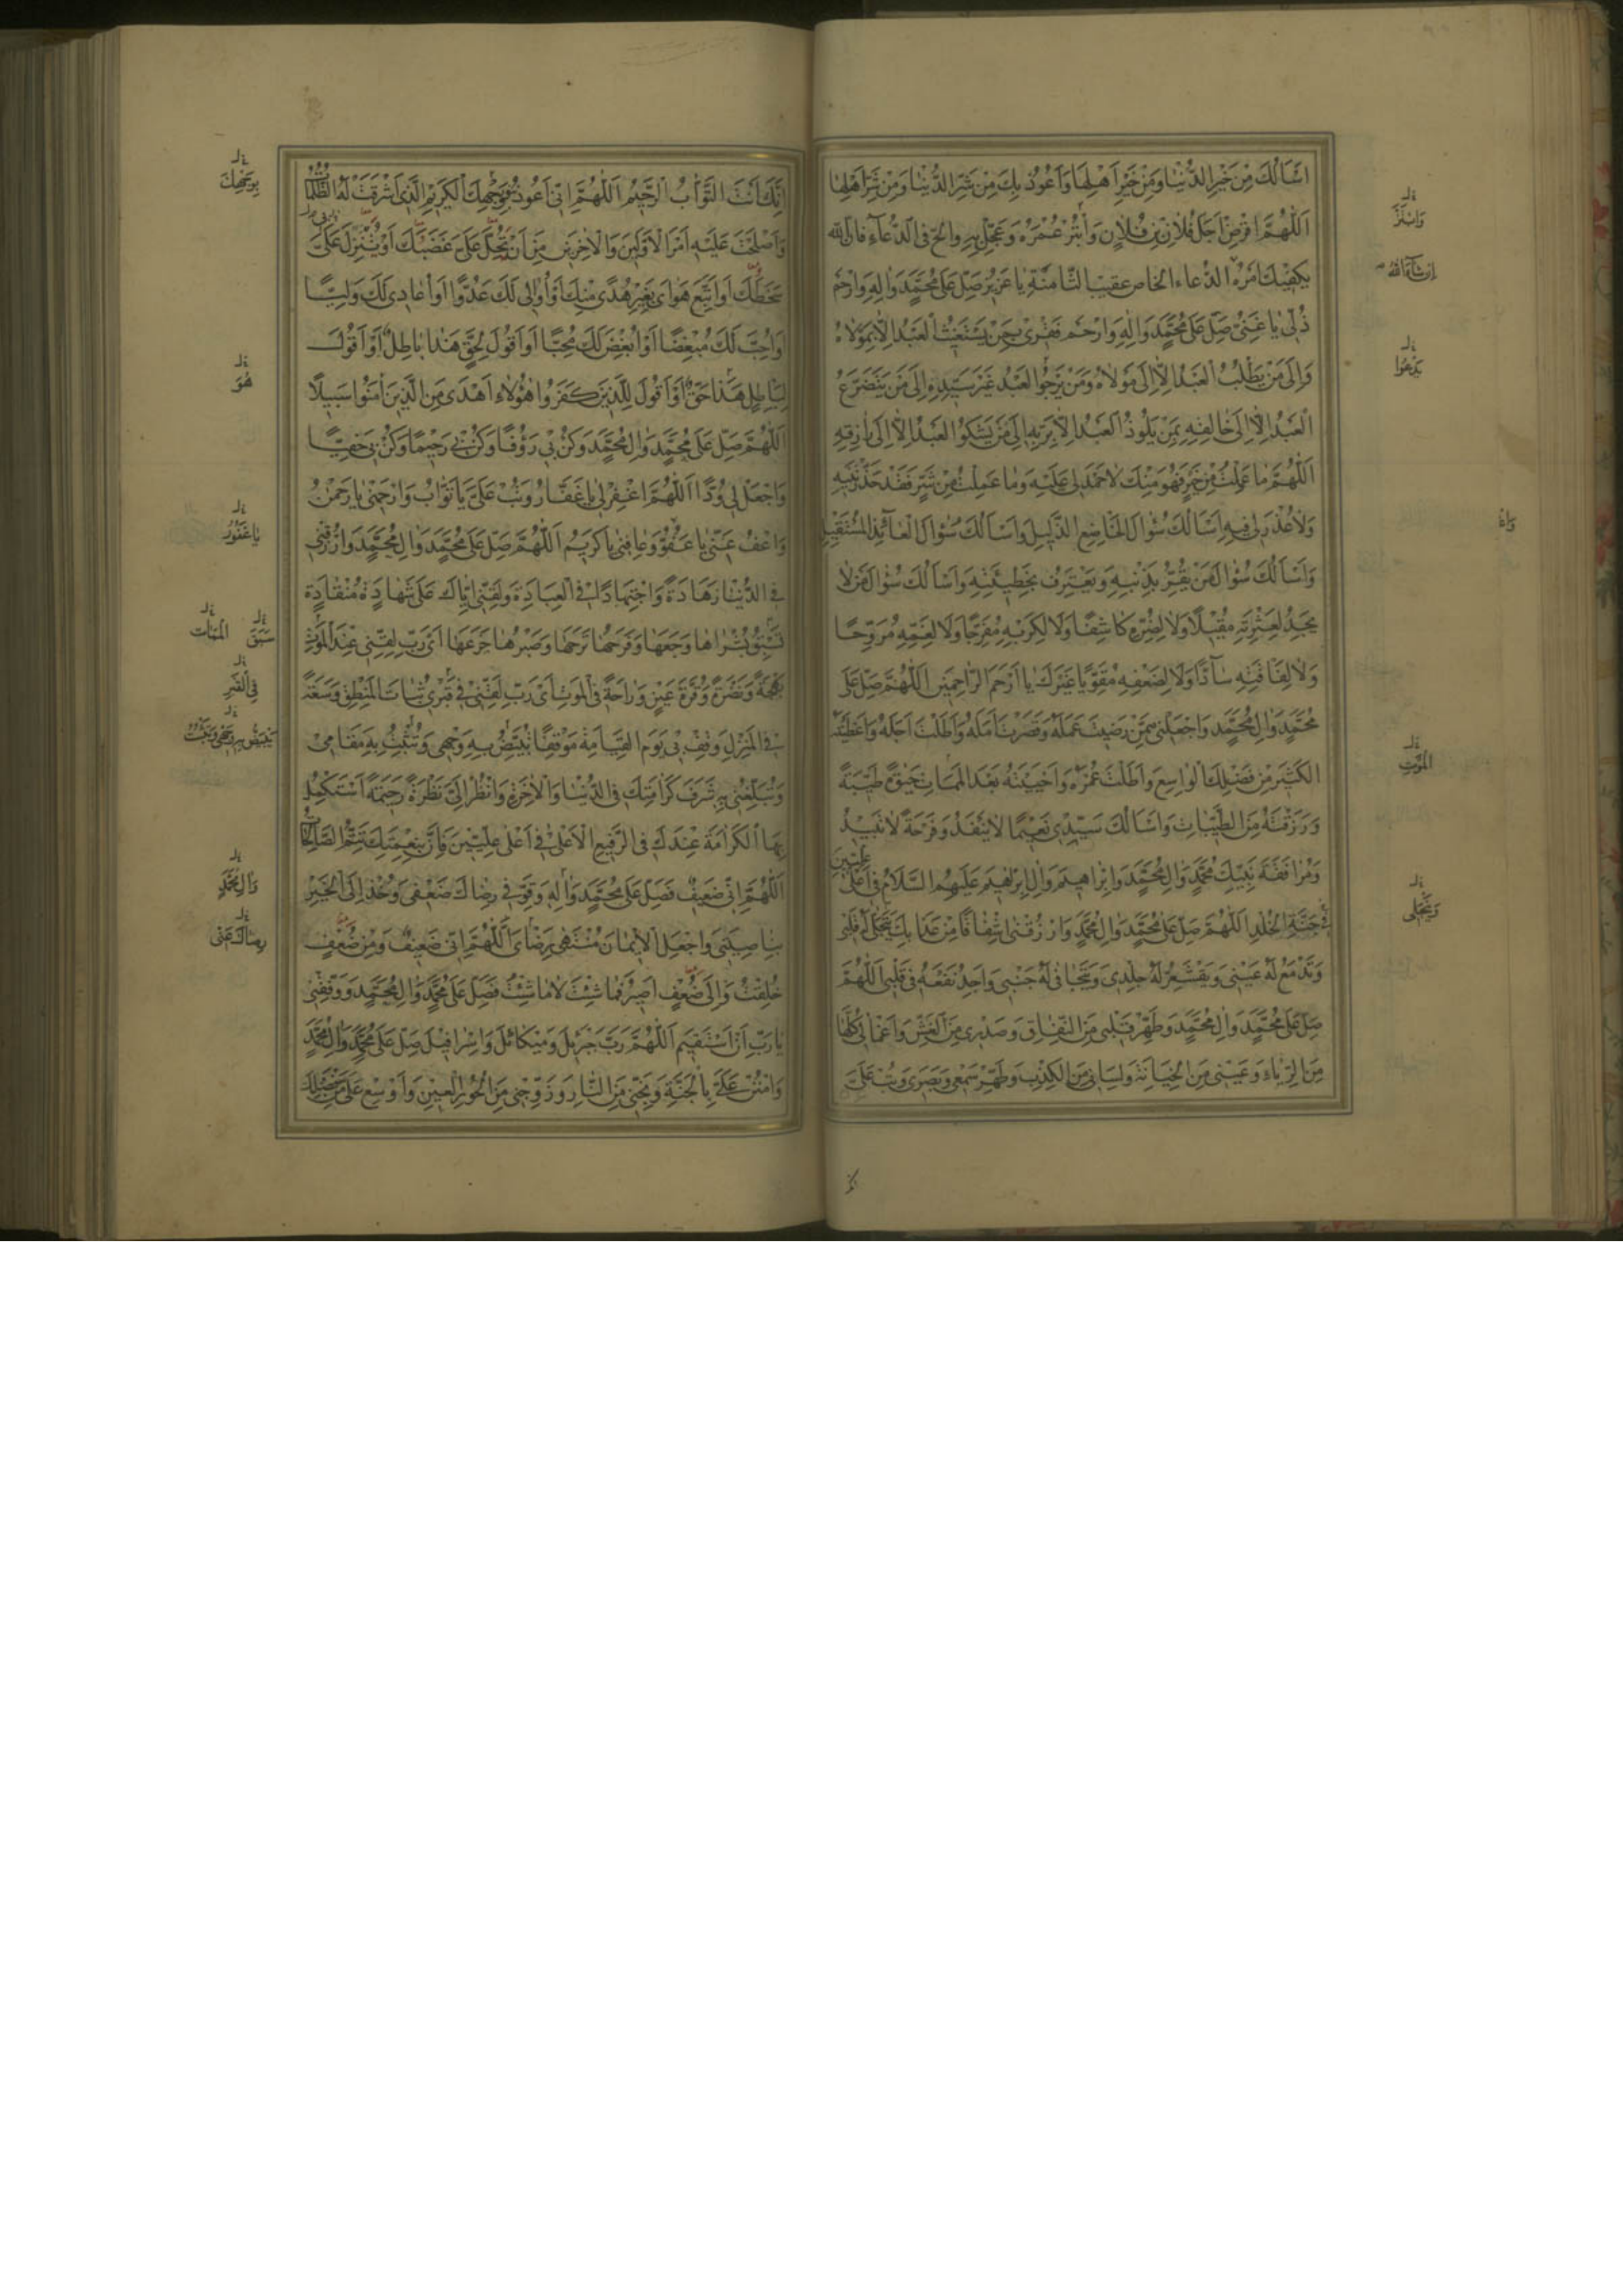 اَسْاَلُكَ مِنْ خَيْرِ الدُّنْيٰا وَمِنْ خَيْرِ اَهْلِهٰا وَاَعُوذُ بِكَ مِنْ شَرِّ الدُّنْيٰا وَمِنْ شَرِّ اَهْلِهٰا
اَللّٰهُمَّ اقْرِضْ اَجَلَ فُلاٰنِ بْنِ فُلاٰنٍ وَابْتُرْ عُمْرَهُ وَعَجِّلْ بِهِ وَالِحّ فِى الدُّعٰاءِ فَاِنَّ اللهَ
يَكْفِيكَ اَمْرَهُ الدُّعاء الخاص عقيب الثّامنة يٰا عَزِيزُ صَلِّ عَلىٰ مُحَمَّدٍ وَاٰلِهِ وَارْحَمْ
ذُلّى يٰا غَنِىُّ صَلِّ عَلىٰ مُحَمَّدٍ وَاٰلِهِ وَارْحَمْ فَقْرى بِمَنْ يَسْتَغيثُ الْعَبْدُ اِلاّٰ بِمَوْلاٰهُ
وَاِلىٰ مَنْ يَطْلُبُ الْعَبْدُ اِلاّٰ اِلىٰ مَوْلاٰهُ وَمَنْ يَرْجُوا الْعَبْدُ غَيْرَ سَيِّدِهِ اِلىٰ مَنْ يَتَضَرَّعُ
الْعَبْدُ اِلاّٰ اِلىٰ خٰالِقِهِ بِمَنْ يَلُوذُ الْعَبْدُ اِلاّٰ بِرَبِّهِ اِلىٰ مَنْ يَشْكُوا الْعَبْدُ اِلاّٰ اِلىٰ رٰازِقِهِ
اَللّٰهُمَّ مٰا عَمِلْتُ مِنْ خَيْرٍ فَهُوَ مِنْكَ لاٰ حَمْدَ لى عَلَيْهِ وَمٰا عَمِلْتُ مِنْ شَرٍّ فَقَدْ حَذَّرْتَنيهِ
وَلاٰ عُذْرَ لى فيهِ اَسْاَلُكَ سُؤٰالَ الْخٰاضِعِ الذَّليلِ وَاَسْاَلُكَ سُؤٰالَ الْعٰائِذِ الْمُسْتَقيلِ
وَاَسْاَلُكَ سُؤٰالَ مَنْ يُقِرُّ بِذَنْبِهِ وَيَعْتَرِفُ بِخَطيئَتِهِ وَاَسْاَلُكَ سُؤٰالَ مَنْ لاٰ
يَجِدُ لِعَثْرَتِهِ مُقيلاً وَلاٰ لِضُرِّهِ كٰاشِفًا وَلاٰ لِكَرْبِهِ مُفَرِّجًا وَلاٰ لِغَمِّهِ مُرَوِّحًا
وَلاٰ لِفٰاقَتِهِ سٰادًّا وَلاٰ لِضَعْفِهِ مُقَوِّيًا غَيْرَكَ يٰا اَرْحَمَ الرّٰاحِمينَ اَللّٰهُمَّ صَلِّ عَلىٰ
مُحَمَّدٍ وَاٰلِ مُحَمَّدٍ وَاجْعَلْنى مِمَّنْ رَضيتَ عَمَلَهُ وَقَصَّرْتَ اَمَلَهُ وَاَطَلْتَ اَجَلَهُ وَاَعْطَيْتَهُ
الْكَثيرَ مِنْ فَضْلِكَ الْوٰاسِعِ وَاَطَلْتَ عُمْرَهُ وَاَحْيَيْتَهُ بَعْدَ الْمَمٰاتِ حَيٰوةً طَيِّبَةً
وَرَزَقْتَهُ مِنَ الطَّيِّبٰاتِ وَاَسْاَلُكَ سَيِّدى نَعيمًا لاٰ يَنْفَدُ وَفَرْحَةً لاٰ تَبيدُ
وَمُرٰافَقَةَ نَبِيِّكَ مُحَمَّدٍ وَاٰلِ مُحَمَّدٍ وَاِبْرٰاهيمَ وَاٰلِ اِبْرٰاهيمَ عَلَيْهِمُ السَّلاٰمُ فى اَعْلىٰ عِلِّيّينَ
فى جَنَّةِ الْخُلْدِ اَللّٰهُمَّ صَلِّ عَلىٰ مُحَمَّدٍ وَاٰلِ مُحَمَّدٍ وَارْزُقْنى اِشْفٰاقًا مِنْ عَذٰابِكَ يَتَجَلّىٰ لَهُ قَلْبى
وَتَدْمَعُ لَهُ عَيْنى وَيَقْشَعِرُّ لَهُ جِلْدى وَيَتَجٰافىٰ لَهُ جَنْبى وَاَجِدُ نَفْعَهُ فى قَلْبى اَللّٰهُمَّ
صَلِّ عَلىٰ مُحَمَّدٍ وَاٰلِ مُحَمَّدٍ وَطَهِّرْ قَلْبى مِنَ النِّفٰاقِ وَصَدْرى مِنَ الْغِشِّ وَاَعْمٰالى كُلَّهٰا
مِنَ الرِّيٰاءِ وَعَيْنى مِنَ الْخِيٰانَةِ وَلِسٰانى مِنَ الْكِذْبِ وَطَهِّرْ سَمْعى وَبَصَرى وَتُبْ عَلَىَّ
وَابْتُرْ
اِنْ شٰاءَ اللهُ
يَدْعُوا
الْمَوْتِ
اِنَّكَ اَنْتَ التَّوّٰابُ الرَّحيمُ اَللّٰهُمَّ اِنّى اَعُوذُ بِنُورِ وَجْهِكَ الْكَريمِ الَّذى اَشْرَقَتْ لَهُ الظُّلُمٰاتُ
وَاَصْلَحْتَ عَلَيْهِ اَمْرَ الْاَوَّلينَ وَالْاٰخِرينَ مِنْ اَنْ يَحُلَّ عَلَىَّ غَضَبُكَ اَوْ يَنْزِلَ عَلَىَّ
سَخَطُكَ اَوْ اَتَّبِعَ هَوٰاىَ بِغَيْرِ هُدًى مِنْكَ اَوْ اُوٰالِىَ لَكَ عَدُوًّا اَوْ اُعٰادِىَ لَكَ وَلِيًّا
اَوْ اُحِبَّ لَكَ مُبْغِضًا اَوْ اُبْغِضَ لَكَ مُحِبًّا اَوْ اَقُولَ لِحَقٍّ هَذٰا بٰاطِلٌ اَوْ اَقُولَ
لِبٰاطِلٍ هَذٰا حَقٌّ اَوْ اَقُولَ لِلَّذينَ كَفَرُوا هٰؤُلاٰءِ اَهْدىٰ مِنَ الَّذينَ اٰمَنُوا سَبيلاً
اَللّٰهُمَّ صَلِّ عَلىٰ مُحَمَّدٍ وَاٰلِ مُحَمَّدٍ وَكُنْ بى رَؤُفًا وَكُنْ بى رَحيمًا وَكُنْ بى حَفِيًّا
وَاجْعَلْ لى وُدًّا اَللّٰهُمَّ اغْفِرْ لى يٰا غَفّٰارُ وَتُبْ عَلَىَّ يٰا تَوّٰابُ وَارْحَمْنى يٰا رَحْمٰنُ
وَاعْفُ عَنّى يٰا عَفُوُّ وَعٰافِنى يٰا كَريمُ اَللّٰهُمَّ صَلِّ عَلىٰ مُحَمَّدٍ وَاٰلِ مُحَمَّدٍ وَارْزُقْنى
فِى الدُّنْيٰا زَهٰادَةً وَاجْتِهٰادًا فِى الْعِبٰادَةِ وَلَقِّنّى اِيّٰاكَ عَلىٰ شَهٰادَةٍ مُنْقٰادَةٍ
تَسْبِقُ بُشْرٰاهٰا وَجَعَهٰا وَفَرَحُهٰا تَرَحَهٰا وَصَبْرُهٰا جَزَعَهٰا اَىْ رَبِّ لَقِّنّى عِنْدَ الْمَوْتِ
بَهْجَةً وَنَضْرَةً وَقُرَّةَ عَيْنٍ وَرٰاحَةً فِى الْمَوْتِ اَىْ رَبِّ لَقِّنّى فى قَبْرى ثَبٰاتَ الْمَنْطِقِ وَسَعَةً
فِى الْمَنْزِلِ وَقِفْ بى يَوْمَ الْقِيٰامَةِ مَوْقِفًا تُبَيِّضُ بِهِ وَجْهى وَتُثَبِّتُ بِهِ مَقٰامى
وَتُبَلِّغُنى بِهِ شَرَفَ كَرٰامَتِكَ فِى الدُّنْيٰا وَالْاٰخِرَةِ وَانْظُرْ اِلَىَّ نَظْرَةً رَحيمَةً اَسْتَكْمِلُ
بِهَا الْكَرٰامَةَ عِنْدَكَ فِى الرَّفيعِ الْاَعْلىٰ فى اَعْلىٰ عِلِّيّينَ فَاِنَّ بِنِعْمَتِكَ تَتِمُّ الصّٰالِحٰاتُ
اَللّٰهُمَّ اِنّى ضَعيفٌ فَصَلِّ عَلىٰ مُحَمَّدٍ وَاٰلِهِ وَقَوِّ فى رِضٰاكَ ضَعْفى وَخُذْ اِلَى الْخَيْرِ
بِنٰاصِيَتى وَاجْعَلِ الْايمٰانَ مُنْتَهىٰ رِضٰاىَ اَللّٰهُمَّ اِنّى ضَعيفٌ وَمِنْ ضَعْفٍ
خُلِقْتُ وَاِلىٰ ضَعْفٍ اَصيرُ فَمٰا شِئْتَ لاٰ مٰا شِئْتُ فَصَلِّ عَلىٰ مُحَمَّدٍ وَاٰلِ مُحَمَّدٍ وَوَفِّقْنى
يٰا رَبِّ اَنْ اَسْتَقيمَ اَللّٰهُمَّ رَبَّ جَبْرَئيلَ وَميكٰائيلَ وَاِسْرٰافيلَ صَلِّ عَلىٰ مُحَمَّدٍ وَاٰلِ مُحَمَّدٍ
وَامْنُنْ عَلَىَّ بِالْجَنَّةِ وَنَجِّنى مِنَ النّٰارِ وَزَوِّجْنى مِنَ الْحُورِ الْعينِ وَاَوْسِعْ عَلَىَّ مِنْ فَضْلِكَ
بِوَجْهِكَ
هُوَ
يٰا غَفُورُ
سَبَقَ الْمَمٰات
فِى الْقَبْرِ
وَاٰلِ مُحَمَّدٍ
رِضٰاكَ عَنّى